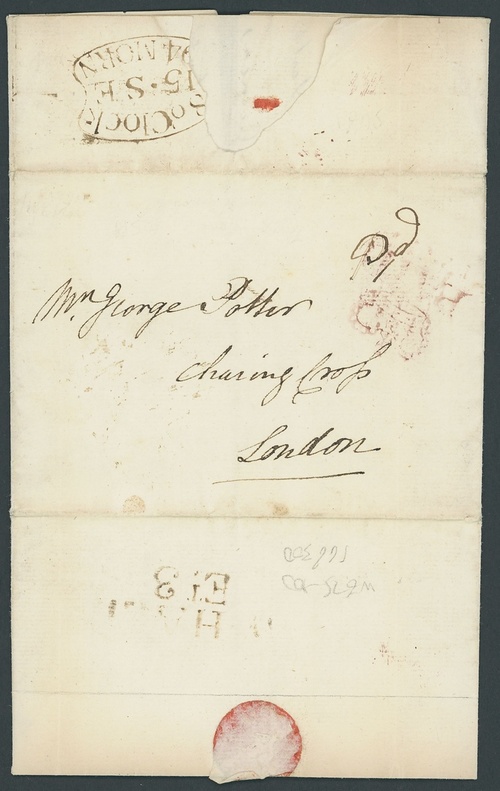 8oClock
15·SE
94 MORN
Pd
Mr George Potter
Charing Cross
London
Et 3